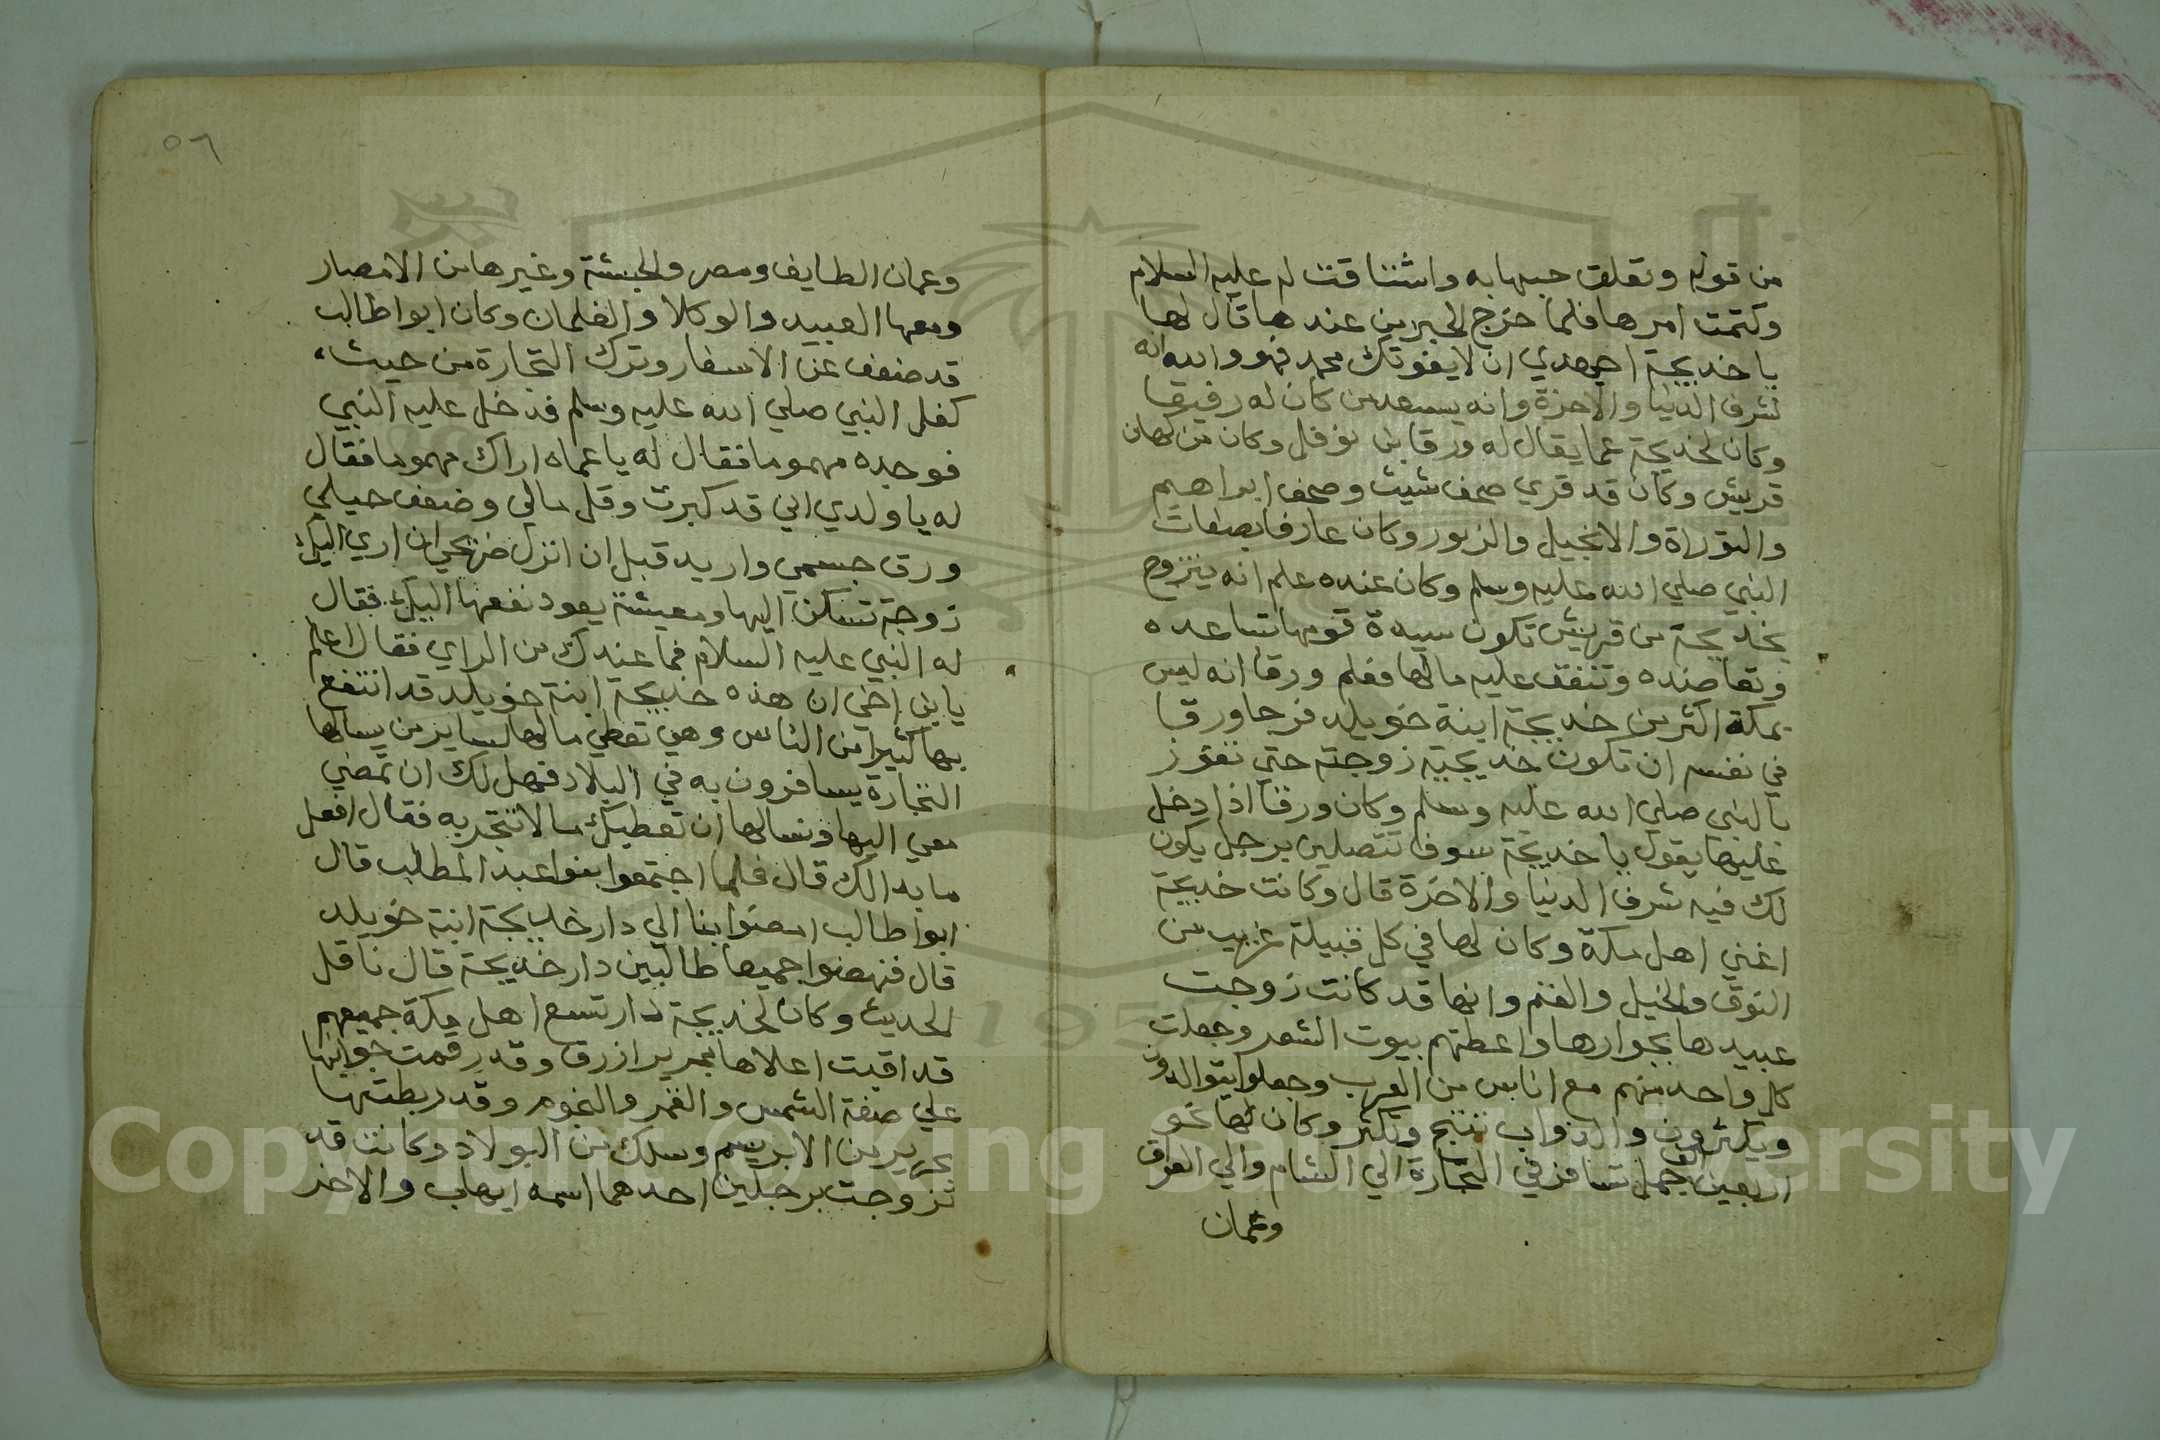 من قوله وتعلق حبها به واشتاقت له عليه السلام
وكتمت امرها فلما خرج الحبر من عندها قال لها
يا خديجة اجهدي ان لا يفوتك محمد فهو والله انه
لشرف الدنيا والاخرة وانه يسعد من كان له رفيقا
وكان لخديجة عما يقال له ورقا بن نوفل وكان من كهان
قريش وكان قد قري صحف شيث وصحف ابراهيم
والتوراة والانجيل والزبور وكان عارفا بصفات
النبي صلي الله عليه وسلم وكان عنده علم انه يتزوج
بخديجة من قريش تكون سيدة قومها تساعده
وتعاضده وتنفق عليه مالها فعلم ورقا انه ليس
بمكة اكثر من خديجة ابنة خويلد فرجا ورقا
في نفسه ان تكون خديجة زوجته حتي تفوز
بالنبي صلي الله عليه وسلم وكان ورقا اذا دخل
عليها يقول يا خديجة سوف تتصلين برجل يكون
لك فيه شرف الدنيا والاخرة قال وكانت خديجة
اغني اهل مكة وكان لها في كل قبيلة غريب من
النوق والخيل والغنم وانها قد كانت زوجت
عبيدها بجوارها واعطتهم بيوت الشعر وجعلت
كل واحد منهم مع اناس من العرب وجعلوا يتوالدون
ويكثرون والدواب تنتج وتكثر وكان لها نحو
اربعين الف جمل تسافر في التجارة الي الشام والي العراق
وعمان
٥٦
وعمان الطايف ومصر والحبشة وغيرها من الامصار
ومعها العبيد والوكلا والغلمان وكان ابوا طالب
قد ضعف عن الاسفار وترك التجارة من حيث
كفل النبي صلي الله عليه وسلم فدخل عليه النبي
فوجده مهموما فقال له يا عماه اراك مهموما فقال
له يا ولدي اني قد كبرت وقل مالي وضعف حيلي
ورق جسمي واريد قبل ان انزل ضريحي ان اري اليك
زوجة تسكن اليها ومعيشة يعود نفعها اليك فقال
له النبي عليه السلام فما عندك من الراي فقال اعلم
يا بن اخي ان هذه خديجة ابنة خويلد قد انتفع
بها كثيرا من الناس وهي تعطي مالها لساير من يسالها
التجارة يسافرون به في البلاد فهل لك ان تمضي
معي اليها ونسالها ان تعطيك مالا تتجر به فقال افعل
ما بدالك قال فلما اجتمعوا بنوا عبد المطلب قال
ابوا طالب امضوا بنا الي دار خديجة ابنة خويلد
قال فنهضوا جميعا طالبين دار خديجة قال ناقل
الحديث وكان لخديجة دار تسع اهل مكة جميعهم
قد اقبت اعلاها بحرير ازرق وقد رقمت جوانبها
علي صفة الشمس والقمر والنجوم وقد ربطتها
بحرير من الابريسم وسلك من البولاد وكانت قد
تزوجت برجلين احدهما اسمه ايهاب والاخر
Copyright © King Saud University
1957